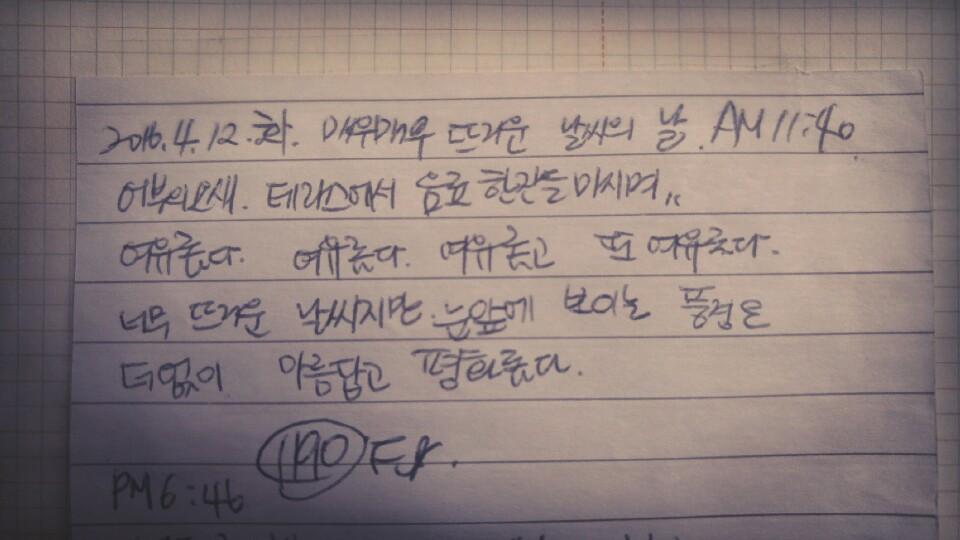 2016.4.12.화. 매우매우 뜨거운 날씨의 날. AM 11:40
어부의요새. 테라스에서 음료 한잔들마시며,,
여유롭다. 여유롭다. 여유롭고 또 여유롭다.
너무 뜨거운 날씨지만 눈앞에 보이는 풍경은
더없이 아름답고 평화롭다.
1190 Ft.
PM 6:46